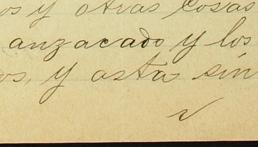 os y otras cosas
anzacado y los
os, y asta sin